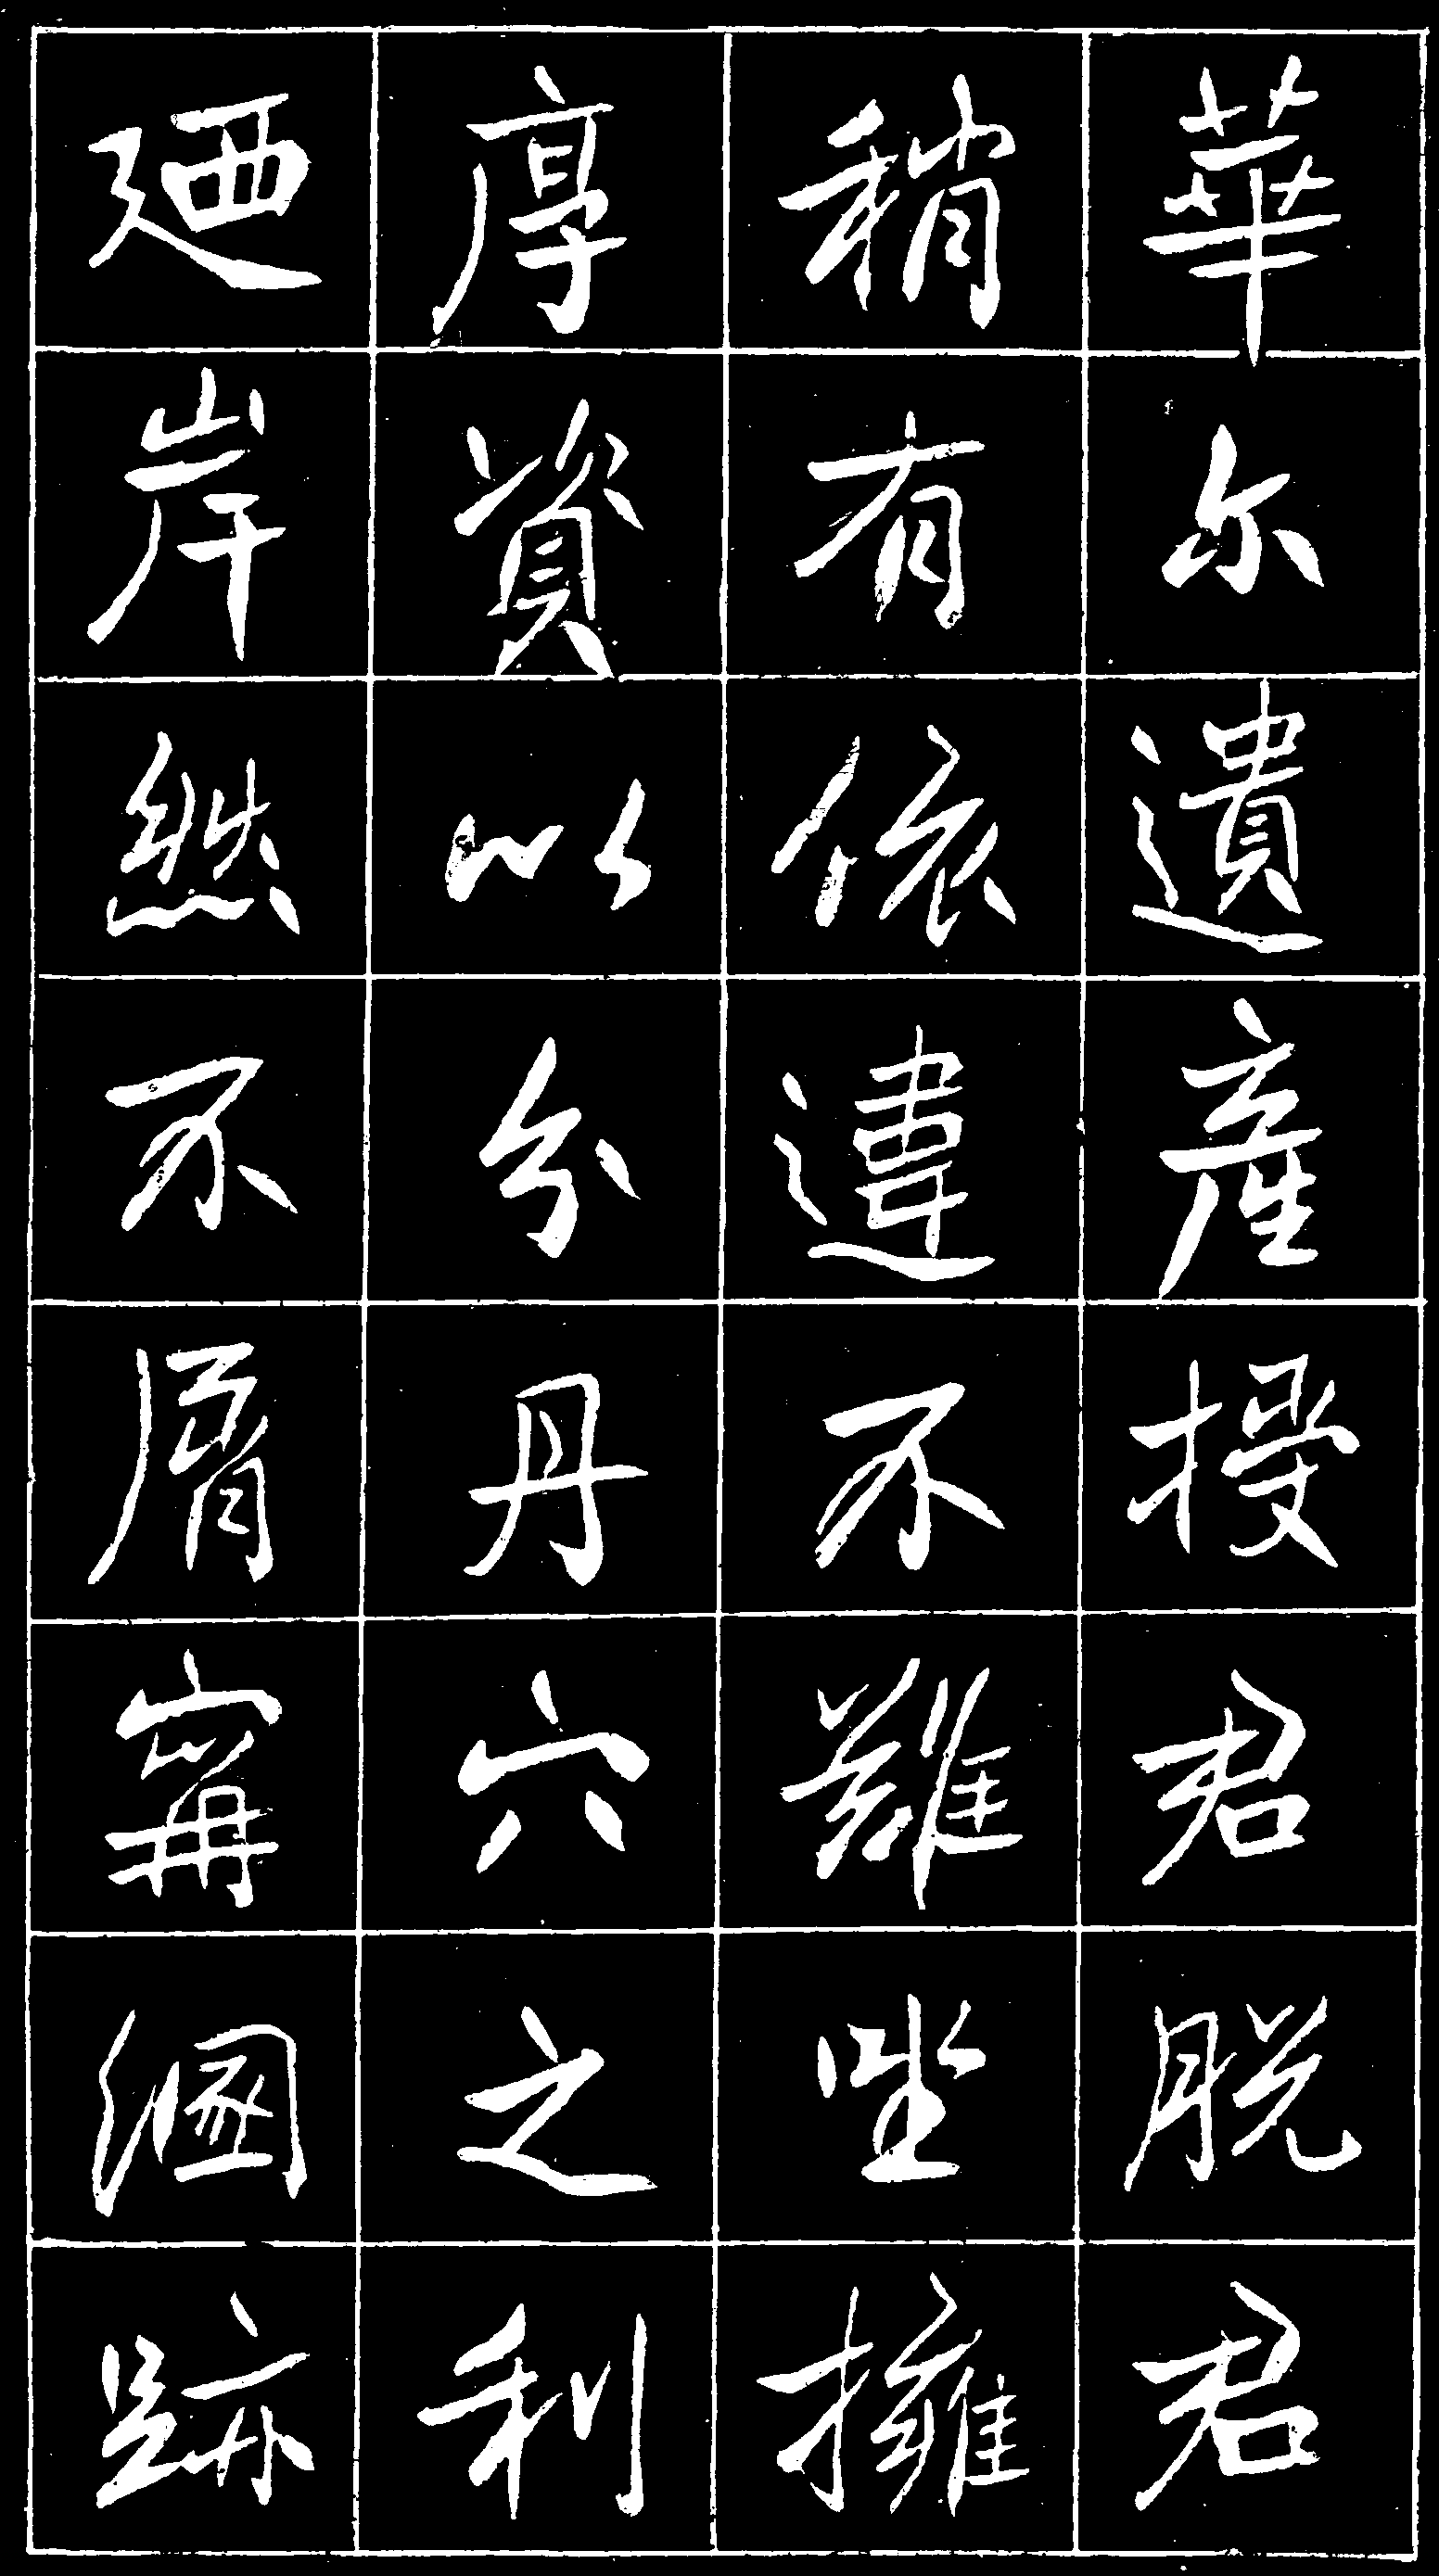 華尓遺產授君脱君
稍有依違不難坐擁
厚資以分丹穴之利
廼岸然不屑寗溷跡